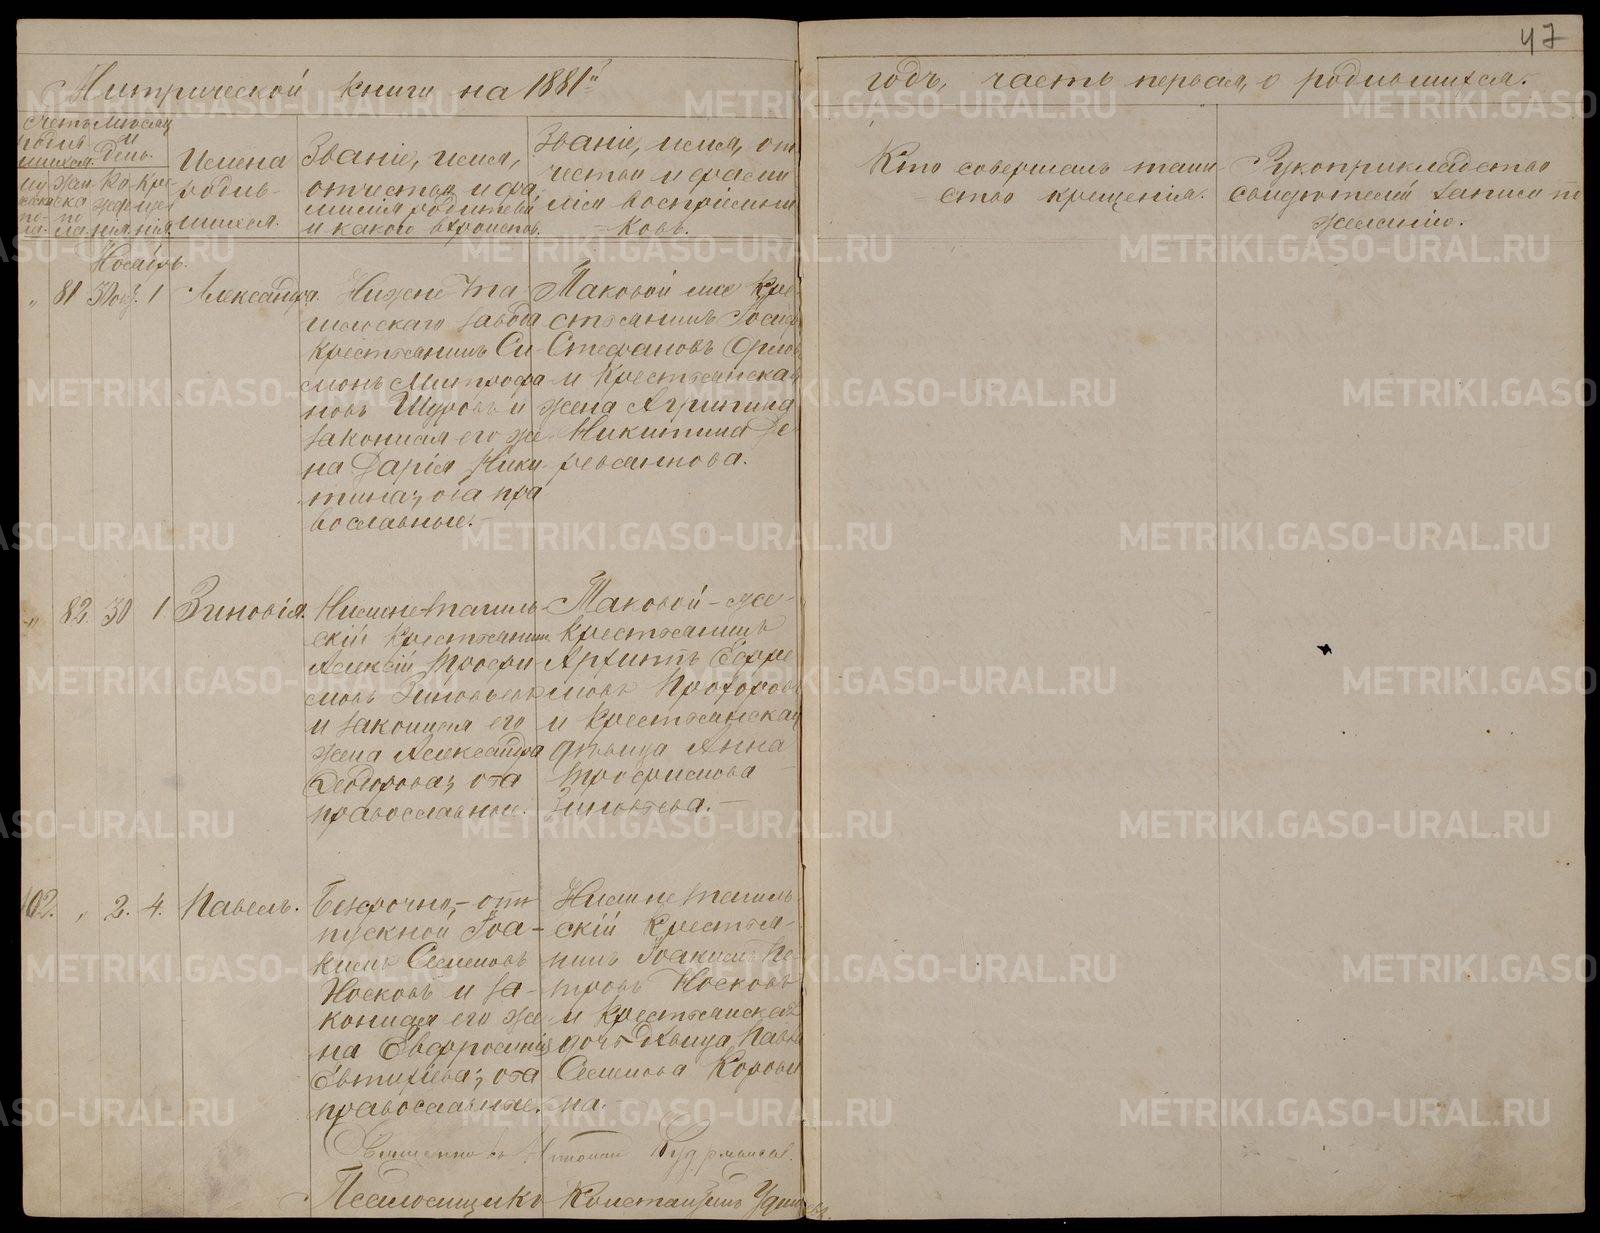 47
Метрической книги на 1881й
годъ, часть первая, о родившихся.
Счетъ родившихся.
Мѣсяц и день.
мужеска пола.
женска пола.
Рожденія.
Крещенія.
Имена
родив-
шихся.
Званіе, имя,
отчество и фа
милія родителей
и какого вѣроиспов.
Званіе, имя, от
чество и фами
лія воспріемни
ковъ.
Кто совершалъ таин
ство крещенія.
Рукоприкладство
свидѣтелей записи по
желанію.
Ноябрь.
" 81 30 окт. 1 Александра.
Нижне Та
гильскаго завода
крестьянинъ Си
монъ Митрофа
новъ Щуровъ и
законная его же
на Дарія Ники
тина; оба пра
вославные.
Таковой же кре
стьянинъ Іосиф
Стефановъ
и крестьянская
жена Агрипина
Никитина Де
ревянкова.
" 82. 30 1 Зиновія.
Нижне-тагиль
скій крестьянин
Алексѣй Трофи
мовъ Зиновьевъ
и законная его
жена Александра
Феодорова; оба
православные.
Таковой-же
крестьянинъ
Архипъ Ефре
мовъ Прохоровъ
и крестьянская
дѣвица Анна
Трофимова
Зиновьева.
102. " 2. 4. Павелъ.
Безсрочно-от
пускной Іоа-
кимъ Семеновъ
Носковъ и за-
конная его же
на Евфросинія
Евтихіева; оба
православные.
Нижнетагиль
скій крестья-
нинъ Іоакимъ Пе-
тровъ Носковъ
и крестьянская
дочь-дѣвица Павла
Семенова Корови
на.
Священникъ
Псаломщикъ Константинъ Удинцевъ.
METRIKI.GASO-URAL.RU